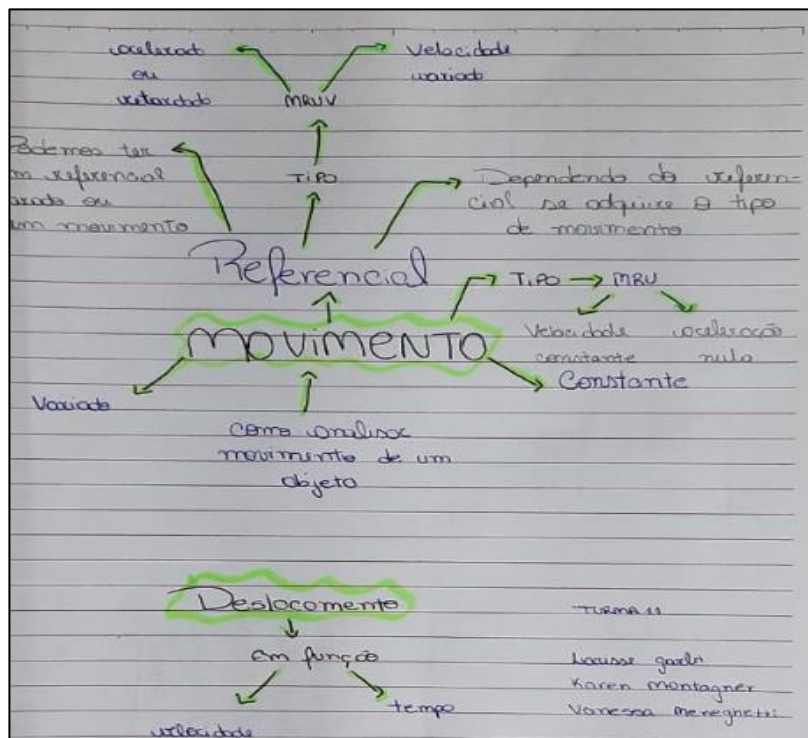 acelerado
ou
retardado
MRUV
Velocidade
variado
Podemos ter
um referencial
parado ou
um movimento
TiPO
Dependendo do referen-
cial se adquire o tipo
de movimento
Referencial
TiPO
MRU
MOViMENTO
Velocidade
constante
aceleração
nula
Constante
Variado
Como analisar
movimento de um
objeto
Deslocamento
Em função
velocidade
tempo
TURMA 11
Karen Montagner
Vanessa Meneghetti